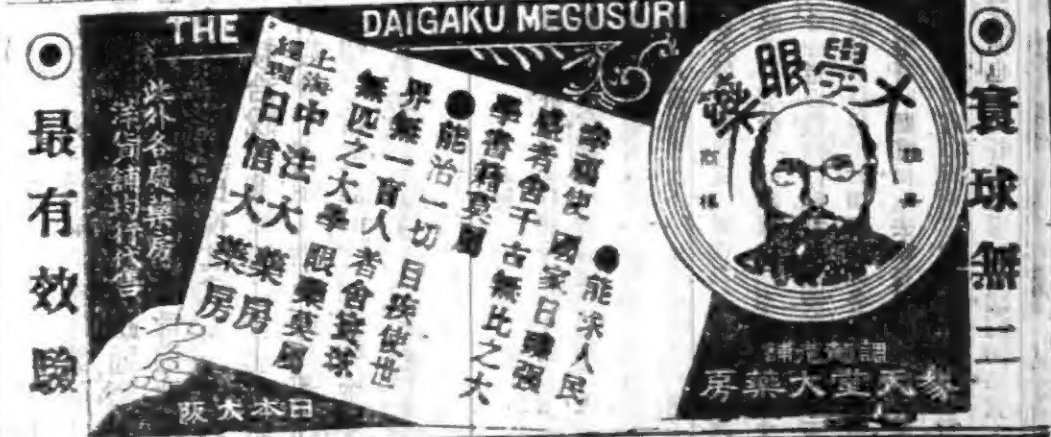 THE DAIGAKU MEGUSURI
寰球無二
大學眼藥
註冊
商標
調劑老舖
參天堂大藥房
●能求人民
幸福使國家日臻強
盛者舍千古無比之大
學書籍莫屬
●能治一切目疾使世
界無一盲人者舍寰球
無匹之大學眼藥莫屬
上海中法大藥房
經理日信大藥房
日本大阪
此外各處藥房
洋貨舖均有代售
最有效驗